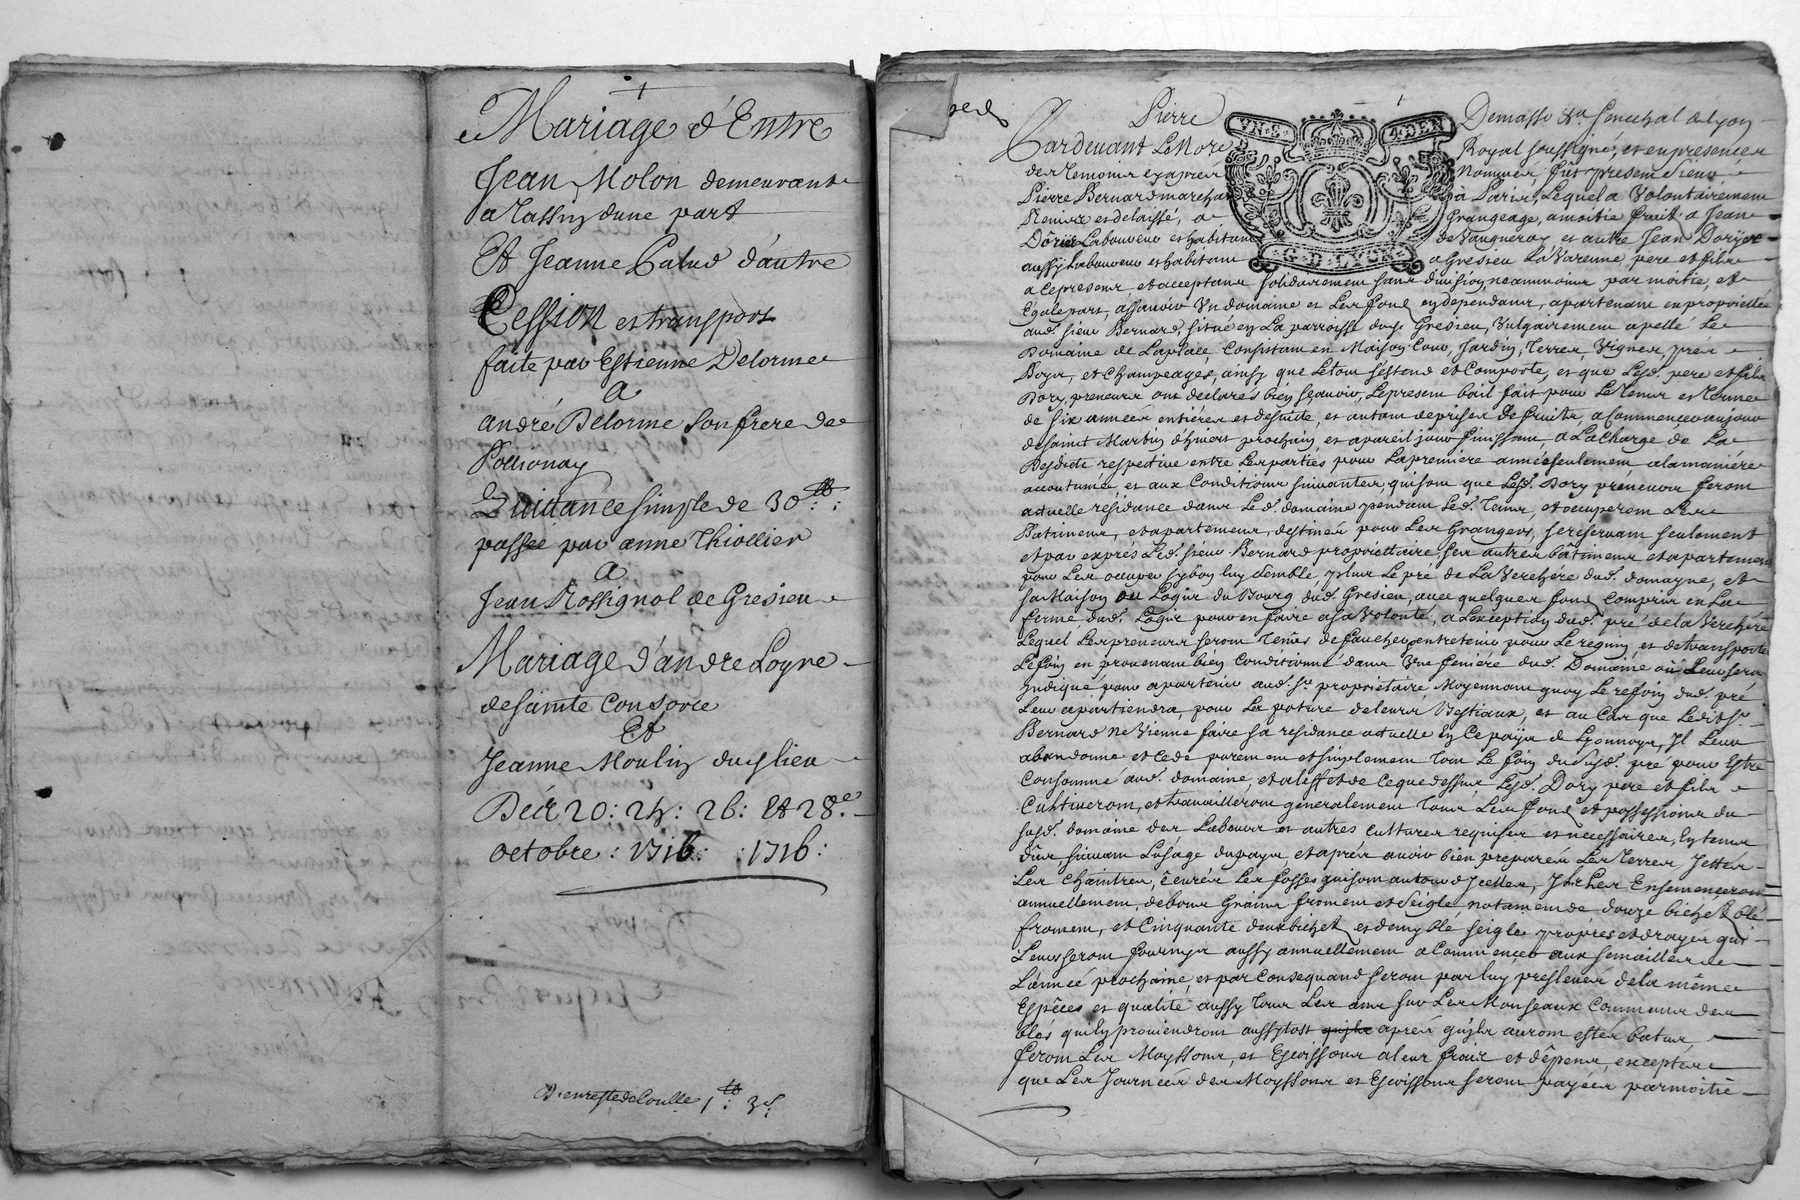 Mariage d'Entre
Jean Molon demeurant
a Tassin dune part
Et Jeanne Palud d'autre
Cession et transport
faite par Estienne Delorme
A
andré Delorme son frere de
Pollionay
Quittance simple de 30 ℔:
passée par anne Thiollier
a
Jean Rossignol de Gresieu
Mariage d'andre Loyne
de sainte Consorce
Et
Jeanne Moulin dud. lieu
Deˢ 20: 24: 26: Et 28.ᵉ
octobre: 1716: :1716:
1 ℔: 3ˢ
Pierre Demasso Sénéchal de Lyon
Pardevant Le Note Royal soussigné, et en presence
des temoins cy apres Nommés, fut present sieur
Pierre Bernard marchand à Paris, Lequel a volontairement
Remis et delaissé, a Grangeage, a moitié fruit a Jean
Dory Laboureur et habitant de Vaugneray et autre Jean Dory
aussy Laboureur et habitant a Gresieu La Varenne pere et fils
a ce present et acceptant solidairement sans division, neanmoins par moitié et
Egale part, a sçavoir Un domaine et Les fonds en dependant, apartenant en proprieté
aud. sieur Bernard, situé en La parroisse dud. Gresieu, Vulgairement apellé Le
Domaine de Laplace, Consistant en Maison, Cour, Jardin, Terres, Vignes, prés
Boys, et Champeages, ainsy que Letout s'estend et Comporte, et que Lesd. pere et fils
Dory, preneurs ont declarés bien sçavoir, Le present bail fait pour Le tems et terme
de six années entiéres et desuite, et autant de prises de fruits, a Commencer au jour
de saint Martin d'hivert prochain et a pareil jour finissant, a La Charge de La
Desdite respective entre Les parties pour La premiere année seulement a la maniére
accoutumée et aux Conditions suivantes, qui sont que Lesd. Dory preneurs feront
actuelle résidance dans Led. domaine pendant Led. tems, et occuperont Les
Batimens, et apartemens, destinés pour Les Grangers, se reservant seulement
et par exprés Led. sieur Bernard proprietaire, ses autres bâtimens et apartemens
pour Les occuper sy bon luy semble, plus Le pré de La Verchére dud. domayne, et
sa Maison ou Logis du Bourg dud. Gresieu, avec quelques fonds Compris en La
ferme dud. Logis pour en faire a sa Volonté, a L'exception dud. pré de la Verchére
Lequel Les preneurs seront tenus de faucher, entretenir pour Le reguin, et de transporter
Le foin en provenant bien Conditionné dans Une feniére dud. Domaine où Leur sera
Indiqué pour apartenir aud. sr proprietaire Moyennant quoy Le refoin dud. pré
Leur apartiendra, pour La pature de leurs Bestiaux, et au Cas que Ledit sr
Bernard Ne Vienne faire sa residance actuelle en Ce pays de Lyonnoys, Il Leur
abandonne et Cede purement et simplement tout Le foin du susd. pré pour Estre
Consommé aud. domaine, et a l'effet de Ce que dessus Lesd. Dory pere et fils
Cultiveront, et travailleront generalement tous Les fonds et possessions du
susd. domaine des Labours et autres cultures requises et necessaires, En tems
dus suivant L'usage du pays, et aprés avoir bien preparés Les terres, Jetter
Les Chaintres, Curér Les fosses qui sont autour d'Icelles, Ils Les Ensemenceront
annuellement, de bons Grains froment et seigle, notament de douze bichets blé
froment, et Cinquante deux bichets et demy blé seigle propres et drayés qui
Leur seront fournys aussy annuellement a Commencer aux semailles de
L'année prochaine et par Consequand seront par luy preslevés de la même
Espêces et qualité aussy tous Les ans sur Les Monseaux Communs des
blés qui en proviendront aussytost aprés qu'ils auront estés batus
feront Les Moyssons, et Escossons a leur frais et dêpens, exceptés
que Les Journées des Moyssons et Escossons seront payées par moitié